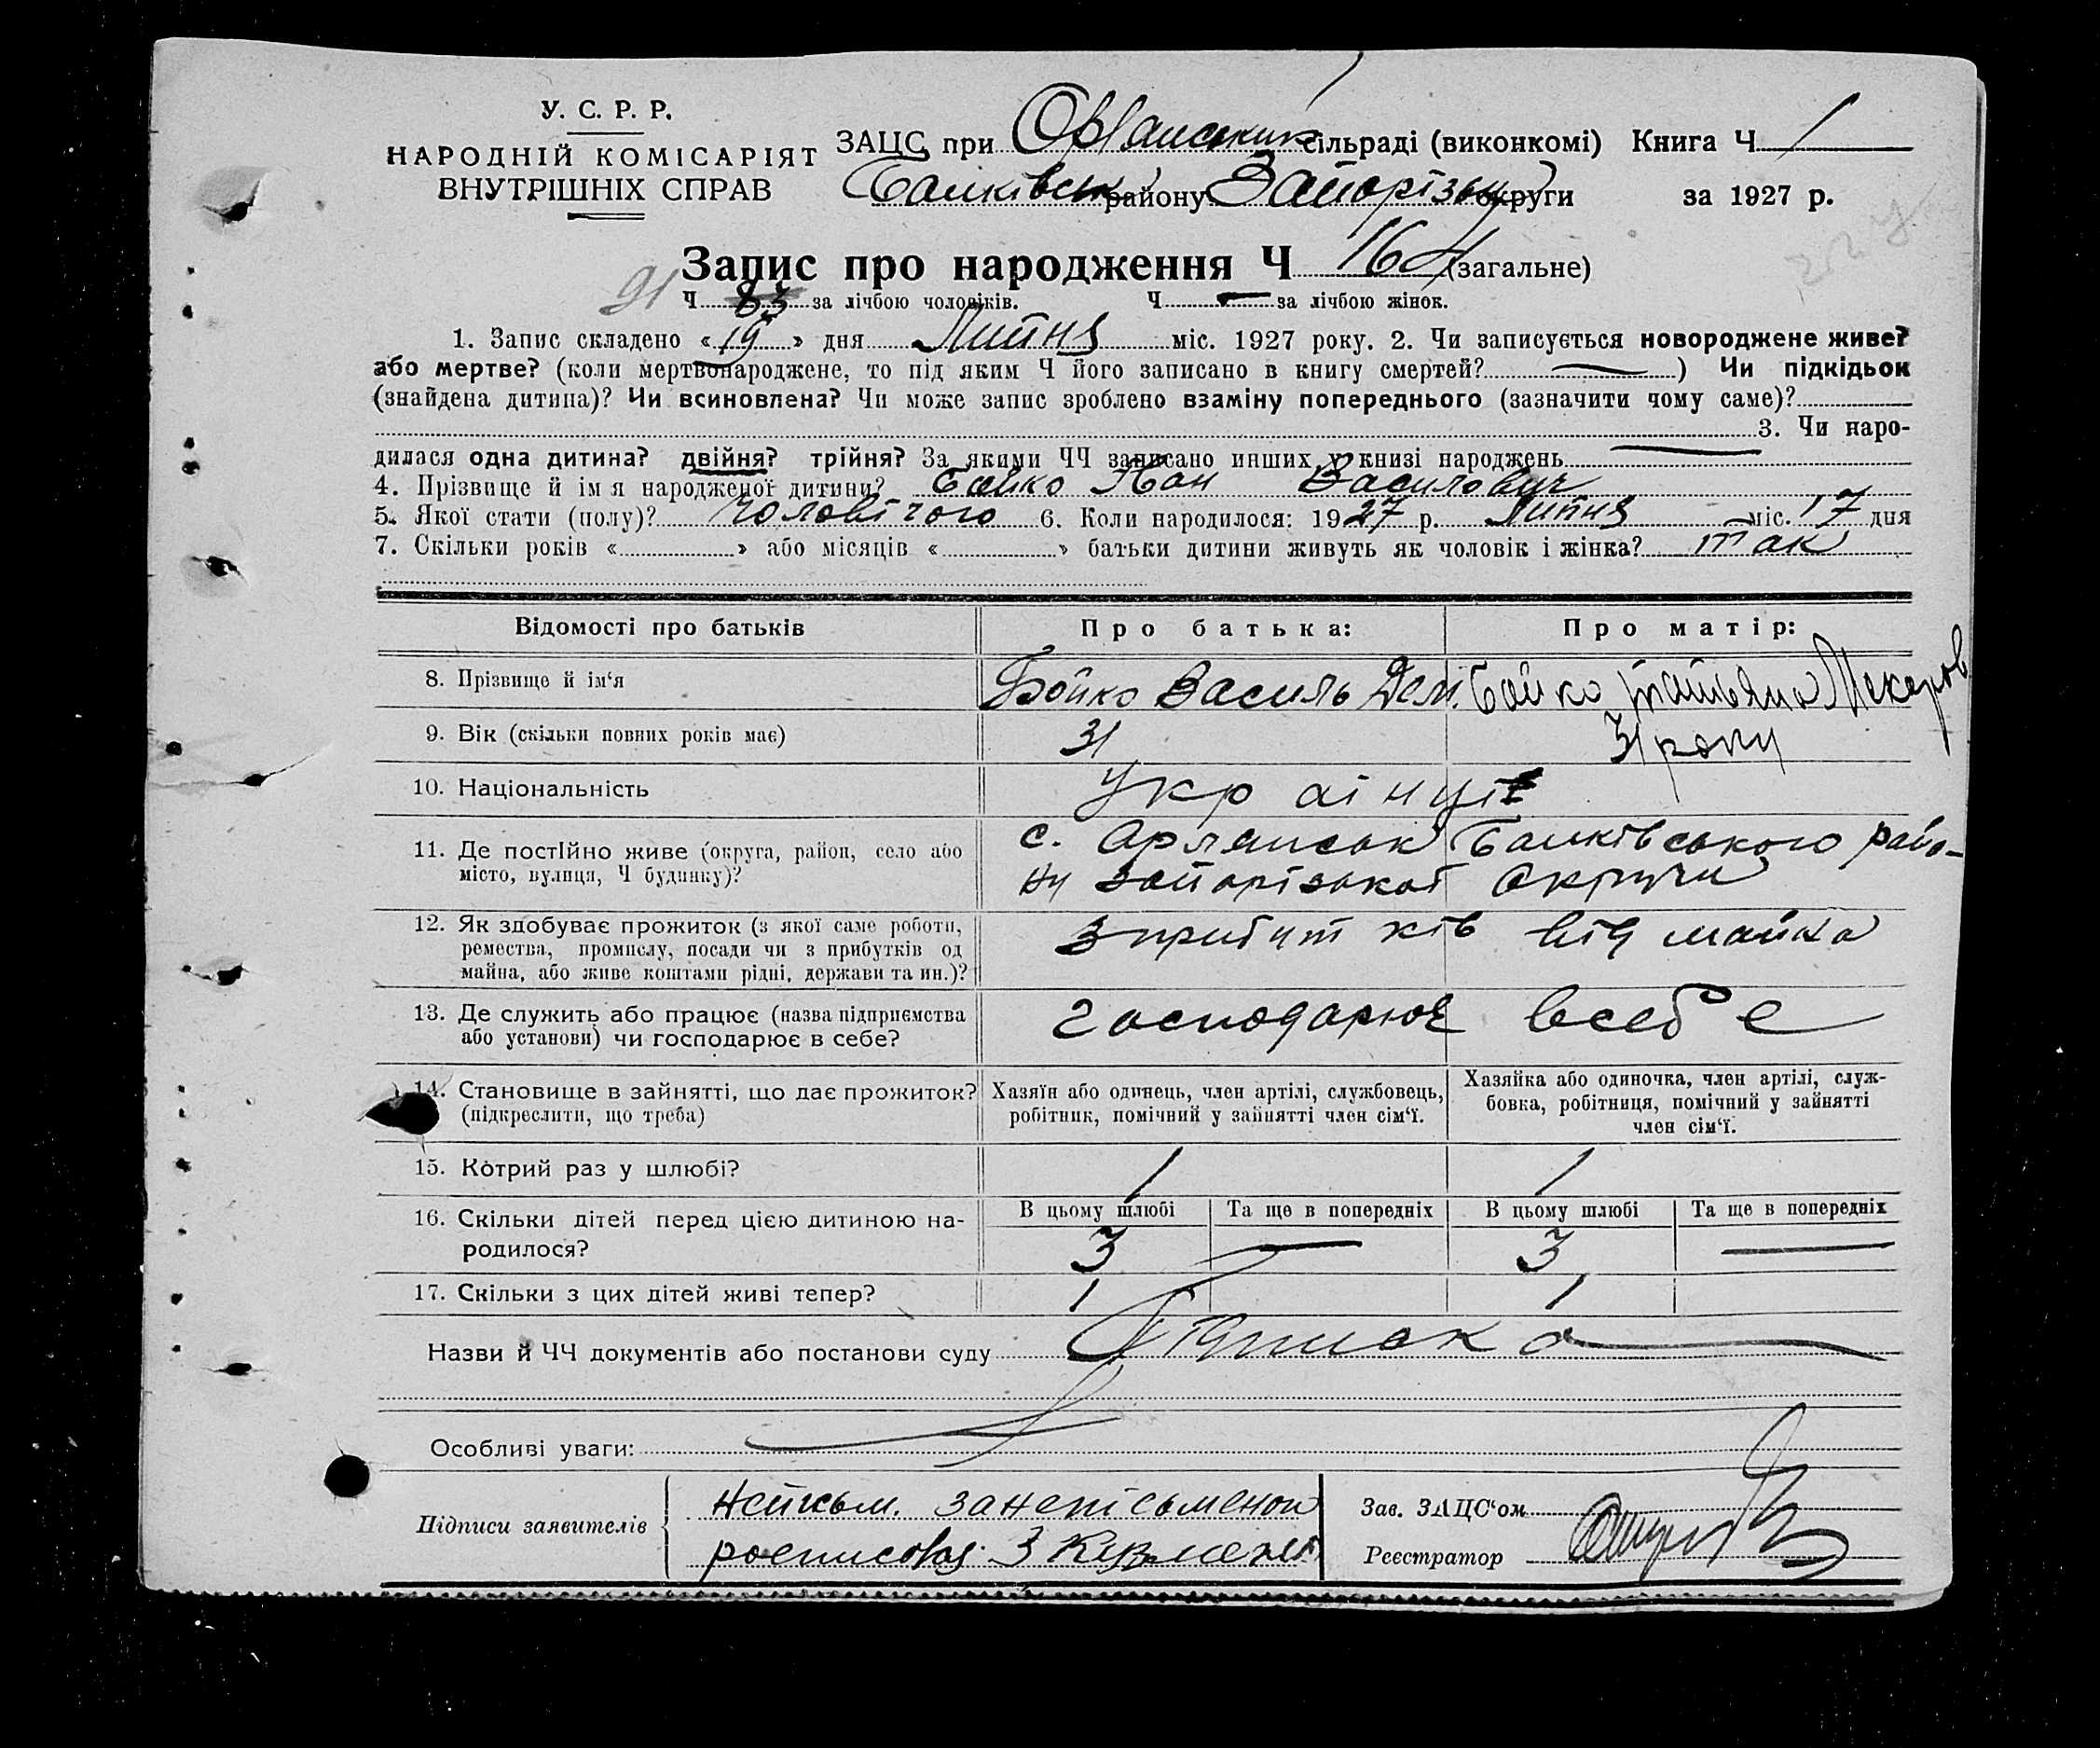 У. С. Р. Р.
НАРОДНІЙ КОМІСАРІЯТ
ВНУТРІШНІХ СПРАВ
ЗАЦС при сільраді (виконкомі) Книга Ч 1
району Запорізьк округи за 1927 р.
Запис про народження Ч 164 (загальне)
91 Ч 83 за лічбою чоловіків. Ч — за лічбою жінок.
1. Запис складено « 19 » дня Липня міс. 1927 року. 2. Чи записується новороджене живе?
або мертве? (коли мертвонароджене, то під яким Ч його записано в книгу смертей? — ) Чи підкідьок
(знайдена дитина)? Чи всиновлена? Чи може запис зроблено взаміну попереднього (зазначити чому саме)?
3. Чи наро-
дилася одна дитина? двійня? трійня? За якими ЧЧ записано инших у книзі народжень —
4. Прізвище й імя народженої дитини? Бойко Іван Василович
5. Якої стати (полу)? чоловічого 6. Коли народилося: 1927 р. Липня міс. 17 дня
7. Скільки років « » або місяців « » батьки дитини живуть як чоловік і жінка? так
Відомості про батьків Про батька: Про матір:
8. Прізвище й ім'я Бойко Василь Дем. Бойко Татьяна
9. Вік (скільки повних років має) 31 31 роки
10. Національність Українці
11. Де постійно живе (округа, район, село або с. Орлянськ Балківського райо-
місто, вулиця, Ч будинку)? ну Запорізької Округи
12. Як здобуває прожиток (з якої саме роботи, З прибутків від майна
ремества, промислу, посади чи з прибутків од
майна, або живе коштами рідні, держави та ин.)?
13. Де служить або працює (назва підприємства господарює всебе
або установи) чи господарює в себе?
14. Становище в зайнятті, що дає прожиток? Хазяїн або одинець, член артілі, службовець, Хазяйка або одиночка, член артілі, служ-
(підкреслити, що треба) робітник, помічний у зайнятті член сім'ї. бовка, робітниця, помічний у зайнятті
член сім'ї.
15. Котрий раз у шлюбі? 1 1
16. Скільки дітей перед цією дитиною на- В цьому шлюбі Та ще в попередніх В цьому шлюбі Та ще в попередніх
родилося? 3 — 3 —
17. Скільки з цих дітей живі тепер? 1 1
Назви й ЧЧ документів або постанови суду
Особливі уваги:
Підписи заявителів
Зав. ЗАЦС'ом
Реєстратор